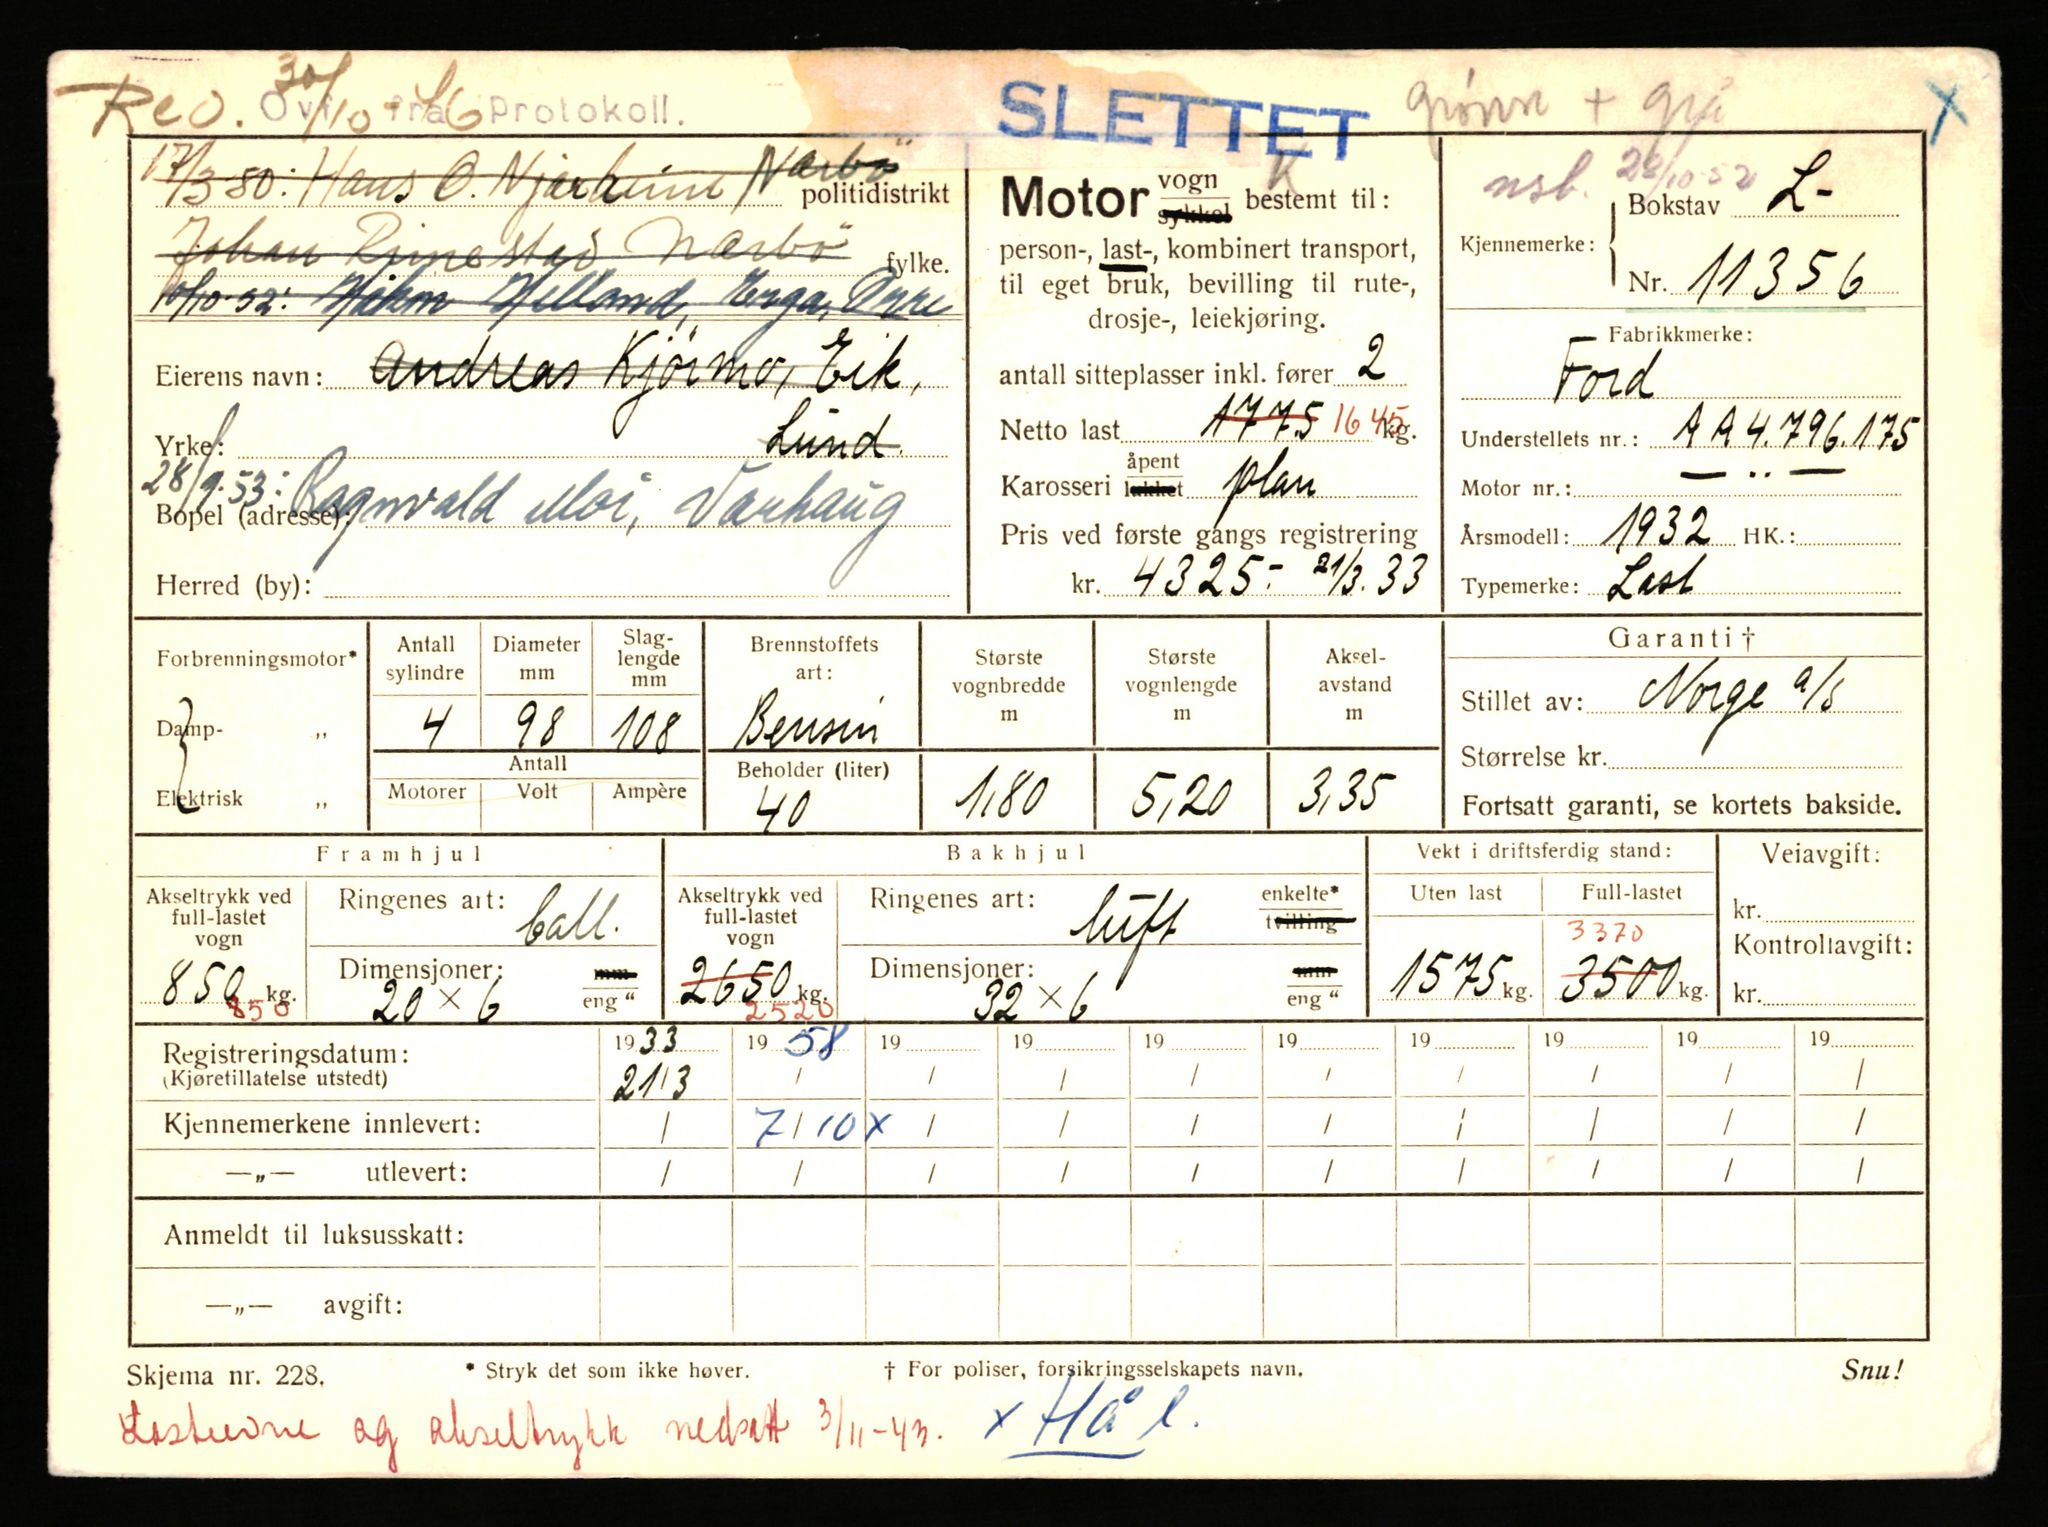 Rev. 30/10-46
Ovf. fra Protokoll.
SLETTET
grønn + grå
X
17/3 50: Hans O. Njærheim Nærbö
politidistrikt
Johan Rimestad Nærbö
fylke.
10/10-52: Håkon Helland, Erga, Orre
Eierens navn: Andreas Kjörmo, Eik,
Yrke: Lund.
28/9.53: Ragnvald Moi, Varhaug
Bopel (adresse):
Herred (by):
Motor vogn sykkel bestemt til:
K
person-, last-, kombinert transport,
til eget bruk, bevilling til rute-,
drosje-, leiekjøring.
antall sitteplasser inkl. fører 2
Netto last 1775 1645 kg.
Karosseri åpent lukket plan
Pris ved første gangs registrering
kr. 4325.- 21/3.33
nsb. 28/10-52
Kjennemerke: Bokstav L-
Nr. 11356
Fabrikkmerke:
Ford
Understellets nr.: AA4.796.175
Motor nr.: — .. —
Årsmodell: 1932 HK.:
Typemerke: Last
Forbrenningsmotor*
Damp- „
Elektrisk „
Antall sylindre
4
Diameter mm
98
Slag-lengde mm
108
Antall
Motorer Volt Ampère
Brennstoffets art:
Bensin
Beholder (liter)
40
Største vognbredde m
1,80
Største vognlengde m
5,20
Aksel-avstand m
3,35
Garanti †
Stillet av: Norge a/s
Størrelse kr.
Fortsatt garanti, se kortets bakside.
Framhjul
Akseltrykk ved full-lastet vogn
850 kg.
850
Ringenes art: ball.
Dimensjoner: mm
20 × 6 eng "
Bakhjul
Akseltrykk ved full-lastet vogn
2650 kg.
2520
Ringenes art: luft enkelte* tvilling
Dimensjoner: mm
32 × 6 eng "
Vekt i driftsferdig stand:
Uten last
1575 kg.
Full-lastet
3370
3500 kg.
Veiavgift:
kr.
Kontrollavgift:
kr.
Registreringsdatum: 1933 1958 19 19 19 19 19 19 19 19
(Kjøretillatelse utstedt) 21/3 / / / / / / / / /
Kjennemerkene innlevert: / 7/10 x / / / / / / / /
—„— utlevert: / / / / / / / / / /
Anmeldt til luksusskatt:
—„— avgift:
Skjema nr. 228.
* Stryk det som ikke høver.
† For poliser, forsikringsselskapets navn.
Snu!
Lasteevne og akseltrykk nedsatt 3/11-43.
x Hå l.